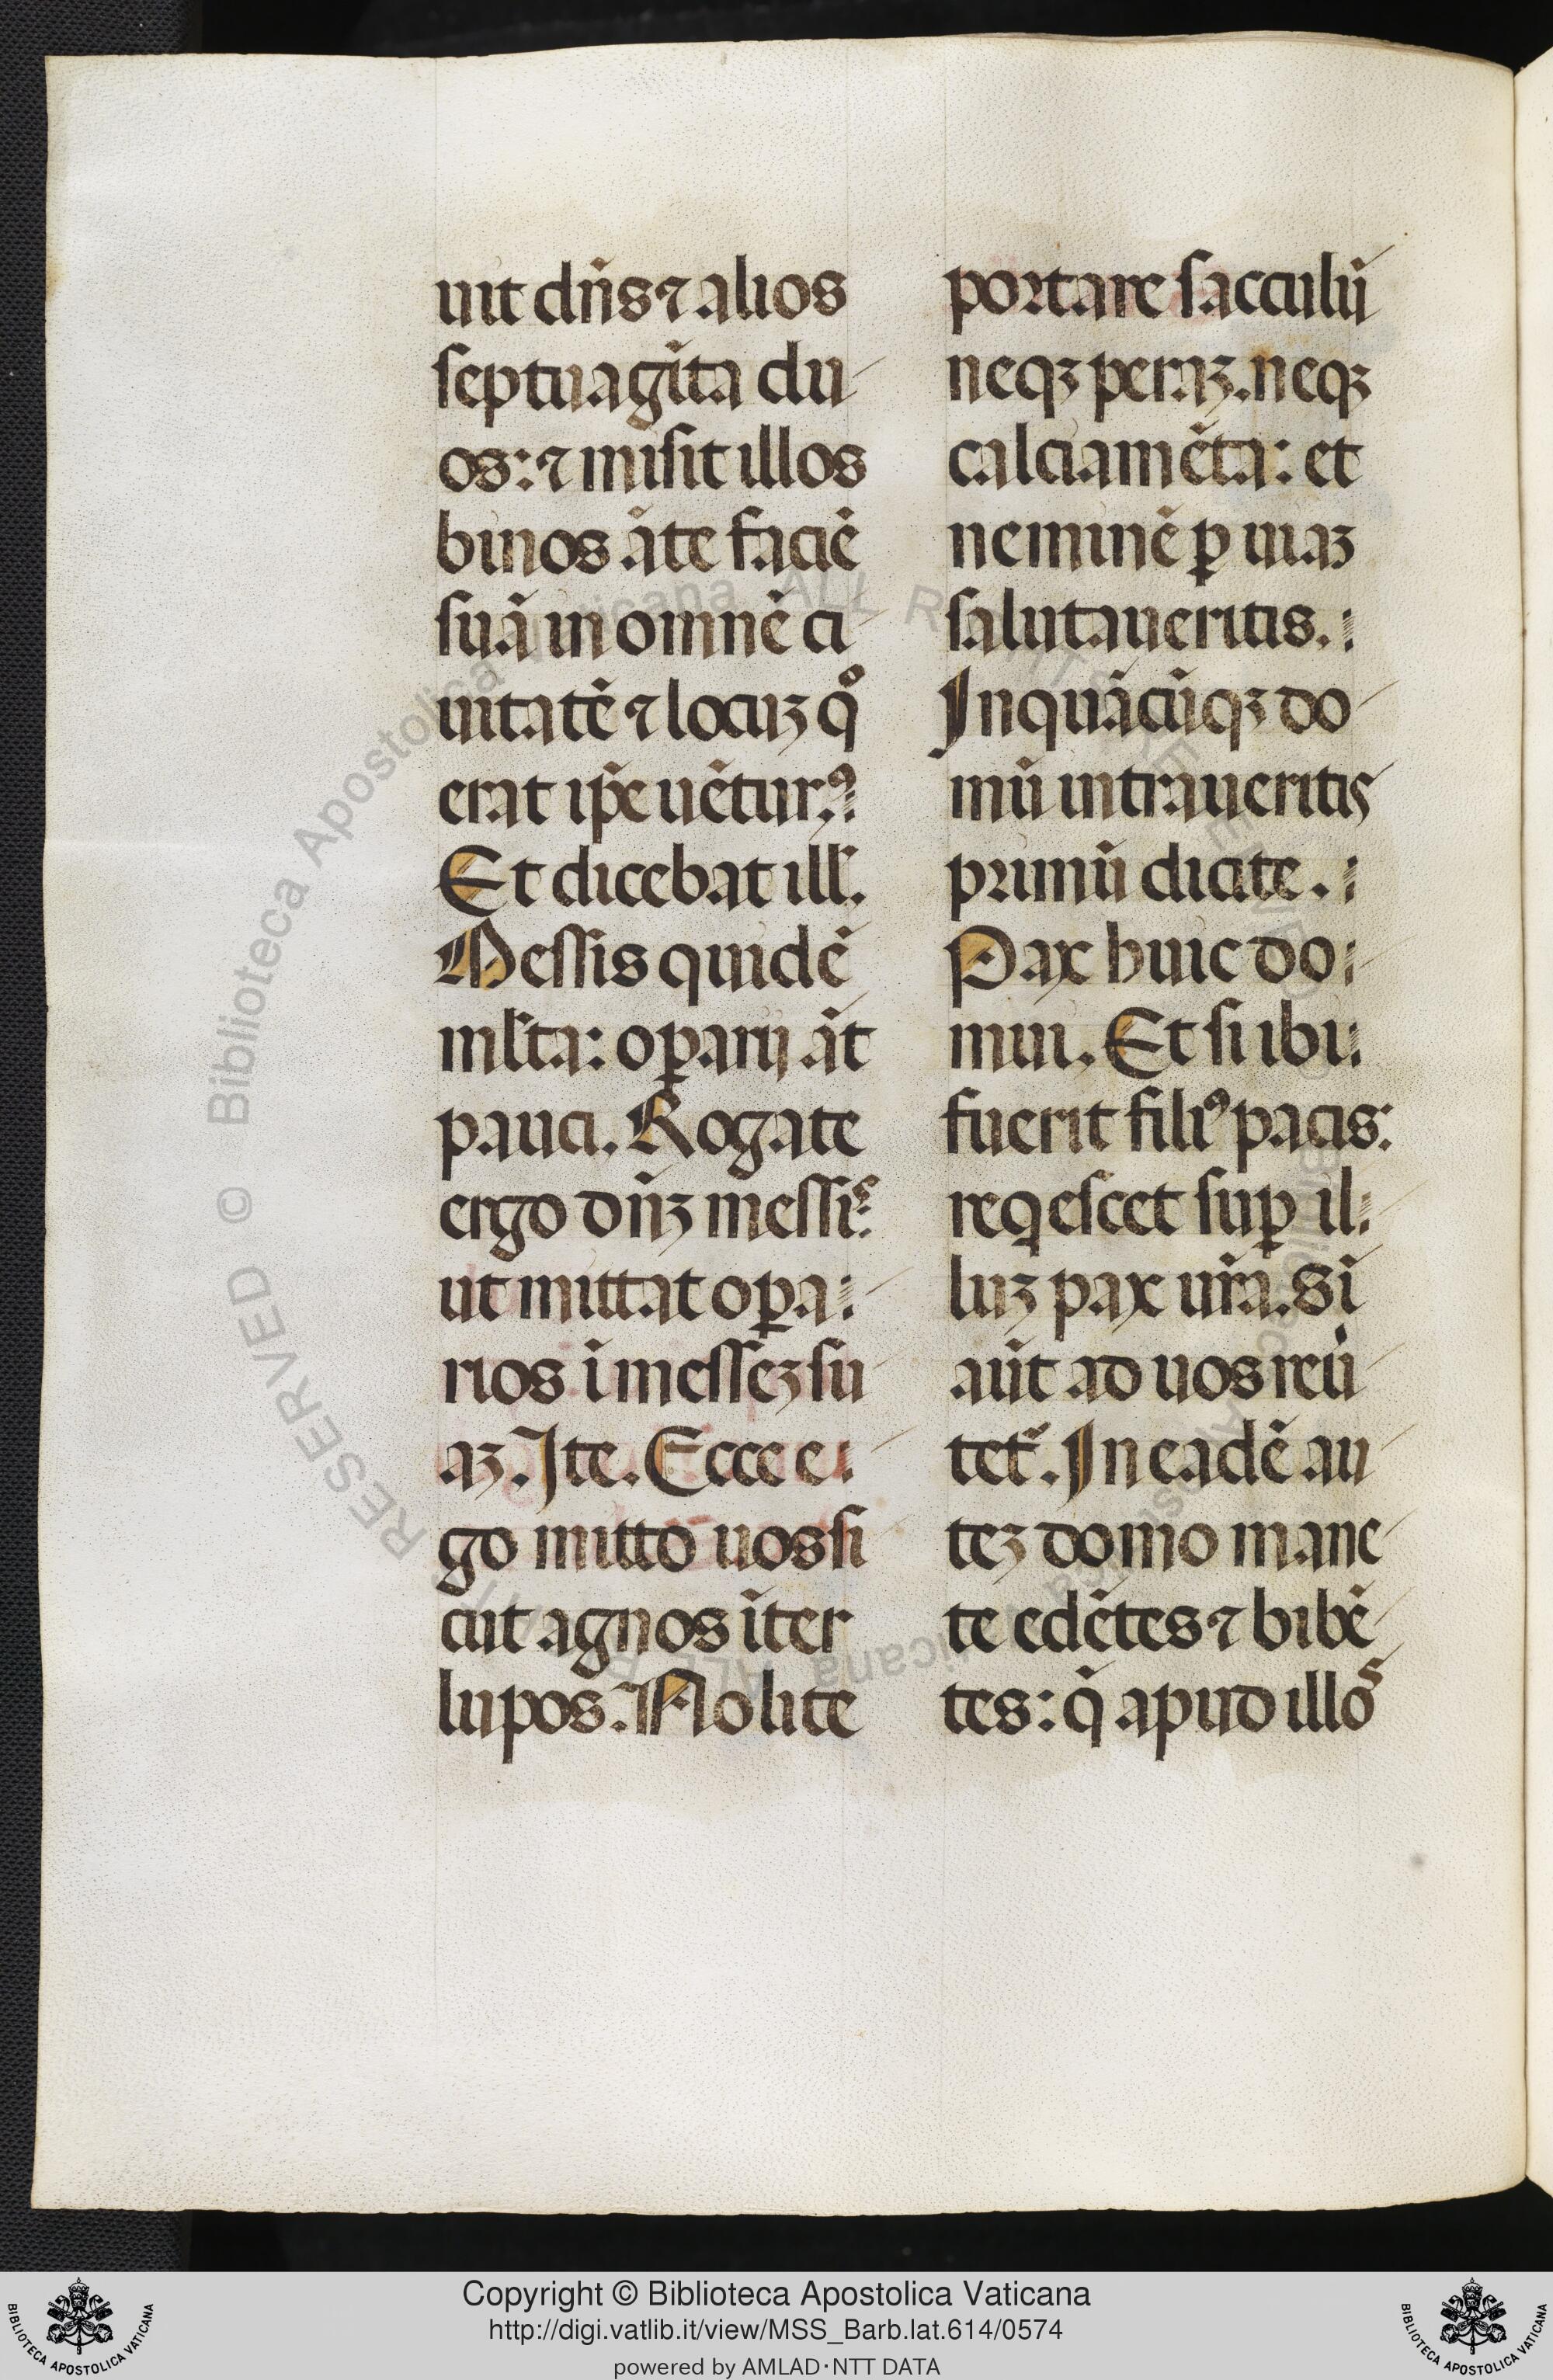 uit dn̄s ⁊ alios
septuagīta du
os: ⁊ misit illos
binos āte faciē
suā in omnē ci
uitatē ⁊ locuꝫ qͦ
erat ip̄e uētur⁹
Et dicebat ill̓.
Messis quidē
ml̓ta: oꝑarij āt
pauci. Rogate
ergo dn̄ꝫ messiˢ:
ut mittat oꝑa
rios ī messeꝫ su
aꝫ. Ite. Ecce e
go mitto uos si
cut agnos īter
lupos. Nolite
portare sacculū
neqꝫ peraꝫ. neqꝫ
calciamēta: et
neminē ꝑ uiaꝫ
salutaueritis.
In quācūqꝫ do
mū intraueritis
primū dicite.
Pax huic do
mui. Et si ibi
fuerit fili⁹ pacis:
reqescet suꝑ il
luꝫ pax ur̄a. Si
aūt ad uos reu̓
tet᷑. In eadē au
teꝫ domo mane
te edētes ⁊ bibē
tes: q̄ apud illoˢ
© Biblioteca Apostolica Vaticana ALL RIGHTS RESERVED
Copyright © Biblioteca Apostolica Vaticana
http://digi.vatlib.it/view/MSS_Barb.lat.614/0574
powered by AMLAD·NTT DATA
BIBLIOTECA APOSTOLICA VATICANA
BIBLIOTECA APOSTOLICA VATICANA